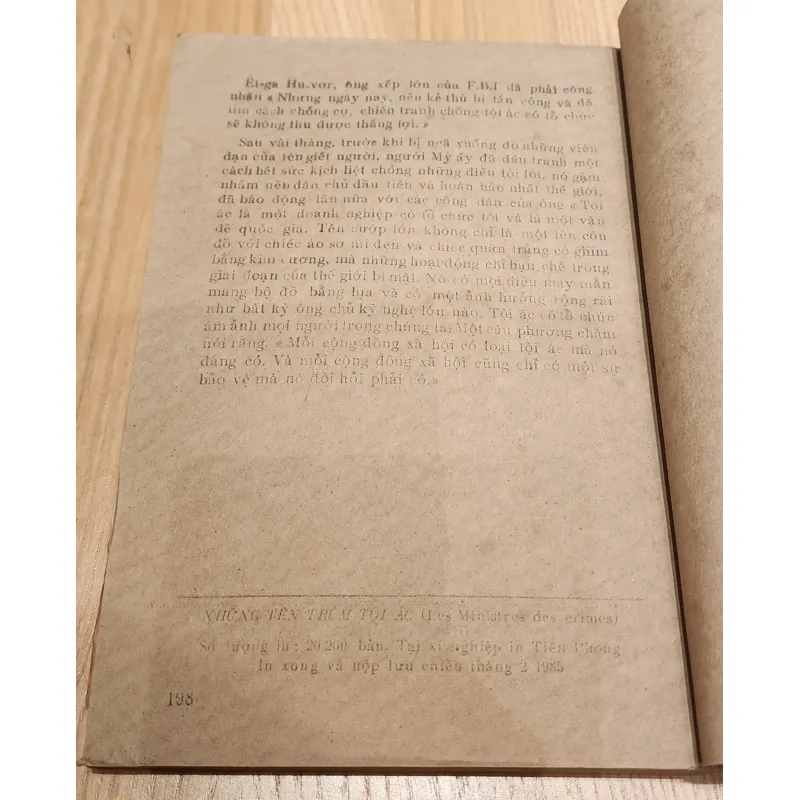 Ét-ga Hu-vơ, ông xếp lớn của F.B.I đã phải công
nhận « Nhưng ngày nay, nếu kẻ thù bị tấn công và đã
tìm cách chống cự, chiến tranh chống tội ác có tổ chức
sẽ không thu được thắng lợi. »
Sau vài tháng, trước khi bị ngã xuống do những viên
đạn của tên giết người, người Mỹ ấy đã đấu tranh một
cách hết sức kịch liệt chống những điều tồi tồi, nó gặm
nhấm nền dân chủ đầu tiên và hoàn hảo nhất thế giới,
đã báo động lần nữa với các công dân của ông « Tội
ác là một doanh nghiệp có tổ chức tốt và là một vấn
đề quốc gia. Tên cướp lớn không chỉ là một tên côn
đồ với chiếc áo sơ mi đen và chiếc quần trắng có ghim
bằng kim cương, mà những hoạt động chỉ hạn chế trong
giai đoạn của thế giới bí mật. Nó có mọi điều may mắn
mang bộ đồ bằng lụa và có một ảnh hưởng rộng rãi
như bất kỳ ông chủ kỹ nghệ lớn nào. Tội ác có tổ chức
ám ảnh mọi người trong chúng ta. Một câu phương châm
nói rằng. « Mỗi cộng đồng xã hội có loại tội ác mà nó
đáng có. Và mỗi cộng đồng xã hội cũng chỉ có một sự
bảo vệ mà nó đòi hỏi phải có.»
NHỮNG TÊN TRÙM TỘI ÁC (Les Ministres des crimes)
Số lượng in : 20.200 bản. Tại xí nghiệp in Tiền Phong
In xong và nộp lưu chiểu tháng 2 1985
198